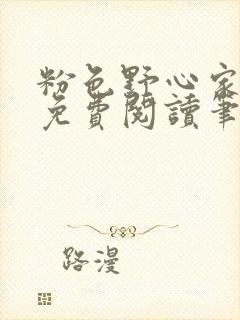 粉色野心家
免費閱讀筆
路漫